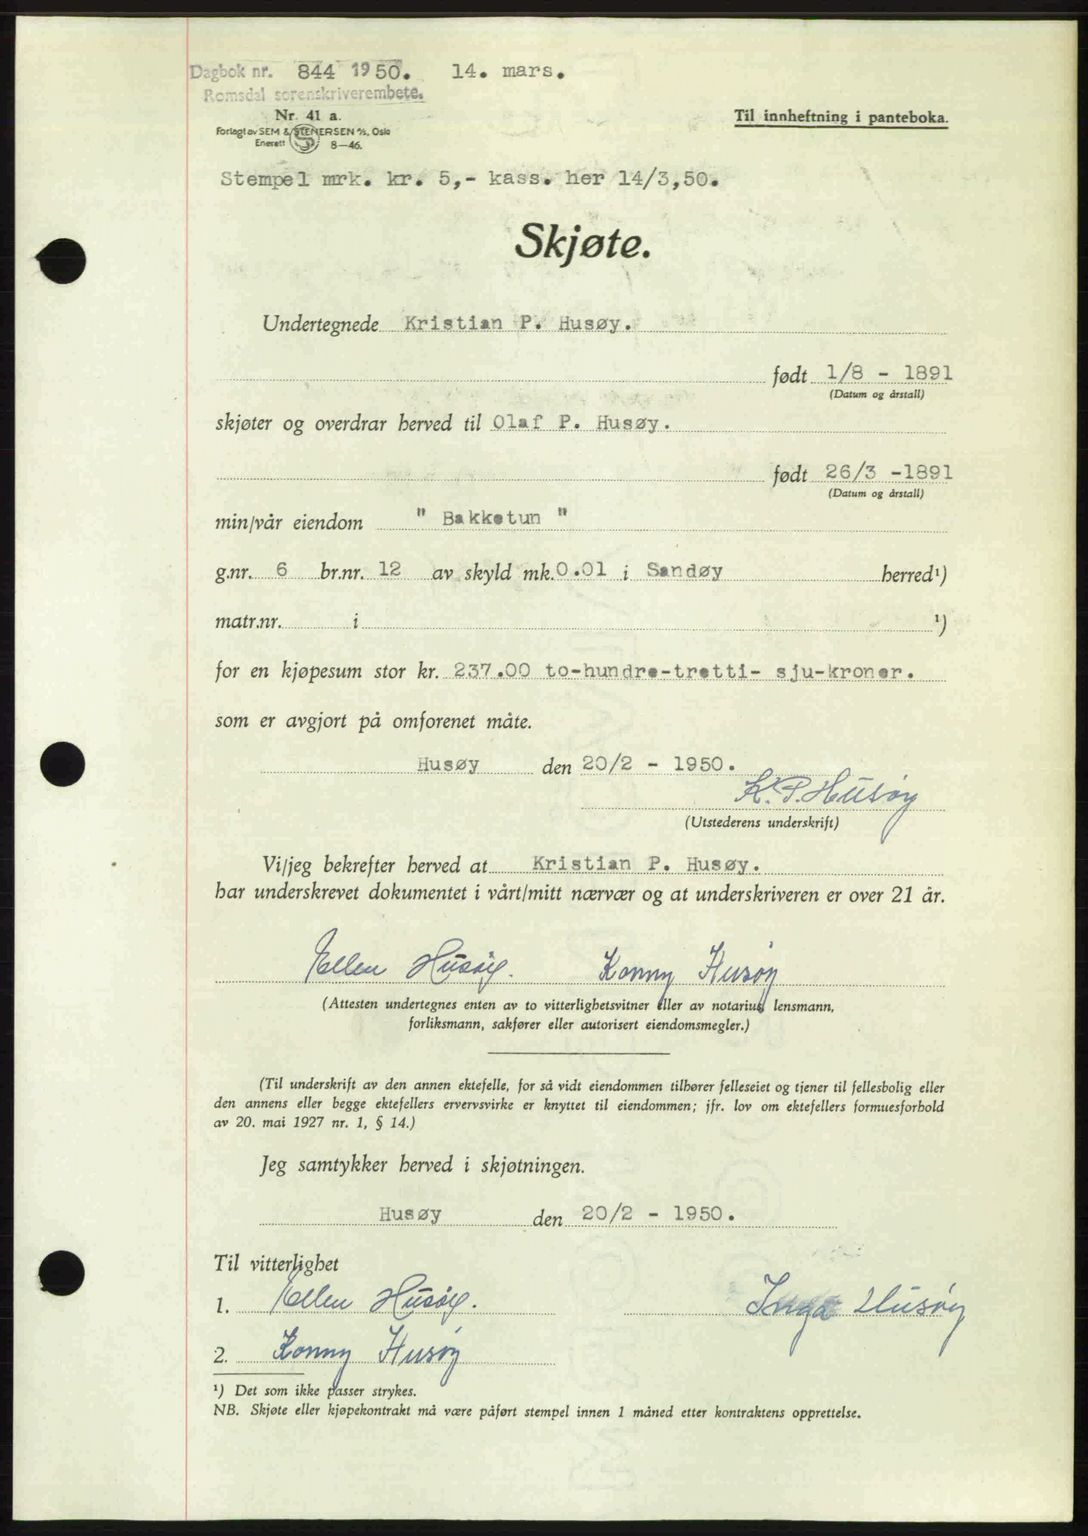 Dagbok nr. 844 1950. 14. mars.
Romsdal sorenskriverembete.
Nr. 41 a.
Til innheftning i panteboka.
Forlagt av SEM & STENERSEN A/S, Oslo
Enerett 8—46.
Stempel mrk. kr. 5,- kass. her 14/3,50.
Skjøte.
Undertegnede Kristian P. Husøy.
født 1/8 - 1891
(Datum og årstall)
skjøter og overdrar herved til Olaf P. Husøy.
født 26/3 -1891
(Datum og årstall)
min/vår eiendom " Bakketun "
g.nr. 6 br.nr. 12 av skyld mk. 0.01 i Sandøy herred¹)
matr.nr. i ¹)
for en kjøpesum stor kr. 237.00 to-hundre-tretti- sju-kroner.
som er avgjort på omforenet måte.
Husøy den 20/2 - 1950.
K. P. Husøy
(Utstederens underskrift)
Vi/jeg bekrefter herved at Kristian P. Husøy.
har underskrevet dokumentet i vårt/mitt nærvær og at underskriveren er over 21 år.
Ellen Husøy. Konny Husøy
(Attesten undertegnes enten av to vitterlighetsvitner eller av notarius, lensmann,
forliksmann, sakfører eller autorisert eiendomsmegler.)
(Til underskrift av den annen ektefelle, for så vidt eiendommen tilhører felleseiet og tjener til fellesbolig eller
den annens eller begge ektefellers ervervsvirke er knyttet til eiendommen; jfr. lov om ektefellers formuesforhold
av 20. mai 1927 nr. 1, § 14.)
Jeg samtykker herved i skjøtningen.
Husøy den 20/2 - 1950.
Til vitterlighet
1. Ellen Husøy. Inga Husøy
2. Konny Husøy
¹) Det som ikke passer strykes.
NB. Skjøte eller kjøpekontrakt må være påført stempel innen 1 måned etter kontraktens opprettelse.